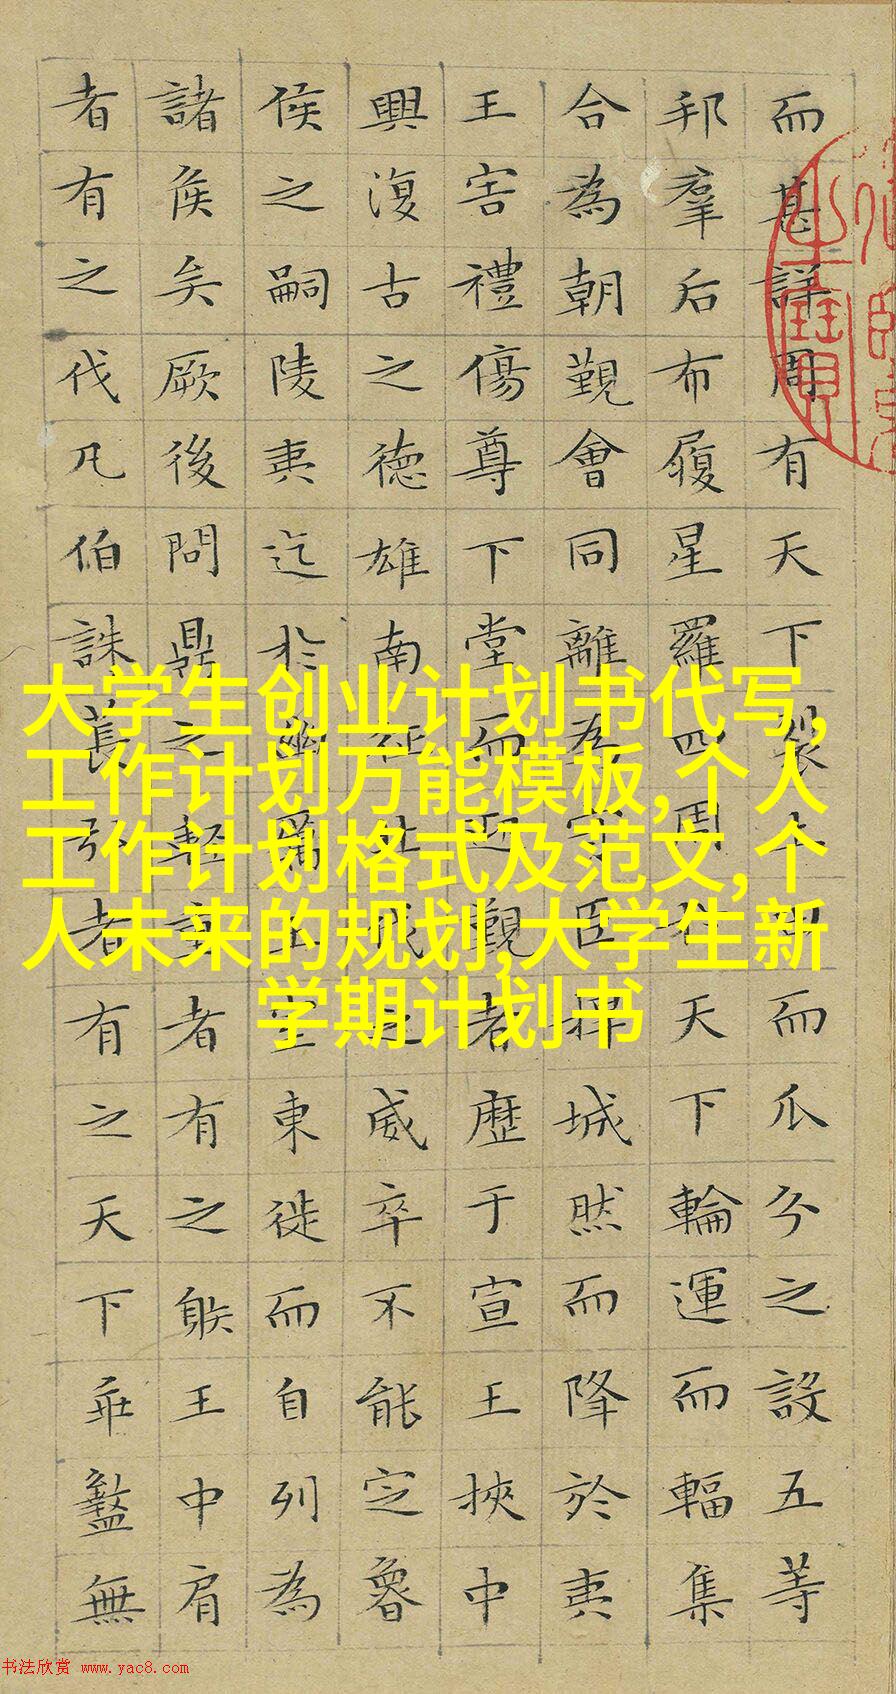 而甚詳周有天下裂土田而瓜分之設五等
邦羣后布履星羅四周於天下輪運而輻集
合為朝覲會同離為守臣扞城然而降於夷
王害禮傷尊下堂而迎覲者歷于宣王挾中
興復古之德雄南征北伐之威卒不能定魯
侯之嗣陵夷迄於幽厲王室東徙而自列為
諸侯矣厥後問鼎之輕重者有之䠶王中肩
者有之伐凡伯誅萇弘者有之天下乖盭無
大学生创业计划书代写,
工作计划万能模板,个人
工作计划格式及范文,个
人未来的规划,大学生新
学期计划书
书法欣赏 www.yac8.com